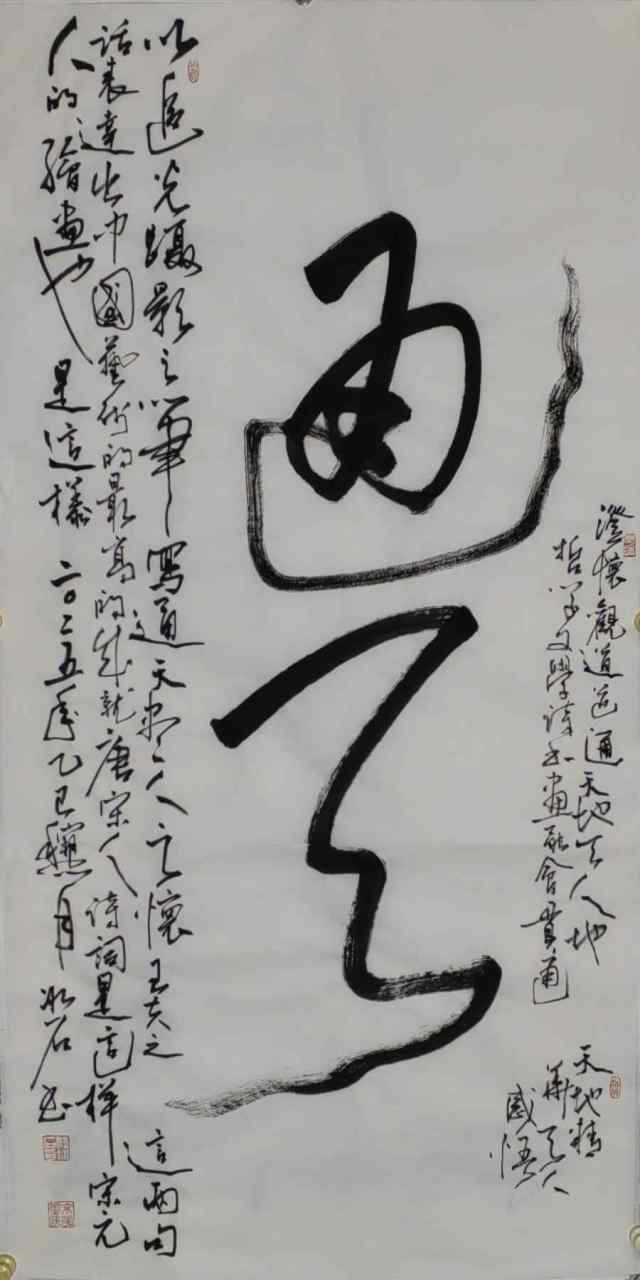 澄懷觀道道通天地天人地
哲学文學詩书畫融會貫通
天地精
華天人
感悟
通天
以追光躡影之筆寫通天盡人之懷王夫之 這兩句
話表達出中國藝術的最高的成就唐宋人詩詞是這样宋元
人的繪畫也是這樣 二〇二五年乙巳龝月 冰石书